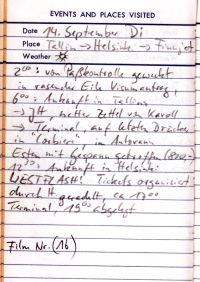 EVENTS AND PLACES VISITED
Date 14. September Di
Place Tallin → Helsinki → Finnjet
Weather
2⁰⁰: von Paßkontrolle geweckt
in rasender Eile Visumantrag,
6⁰⁰: Ankunft in Tallinn
→ JH, netter Zettel von
→ Terminal, auf letzten Drücker
in
Esten mit gespann getroffen (800,-)
12⁰⁰: Ankunft in Helsinki
WESTFLASH! Tickets organisiert
durch H geradelt, ca 17⁰⁰
Terminal, 19⁰⁰ abgelegt
Film Nr. (16)